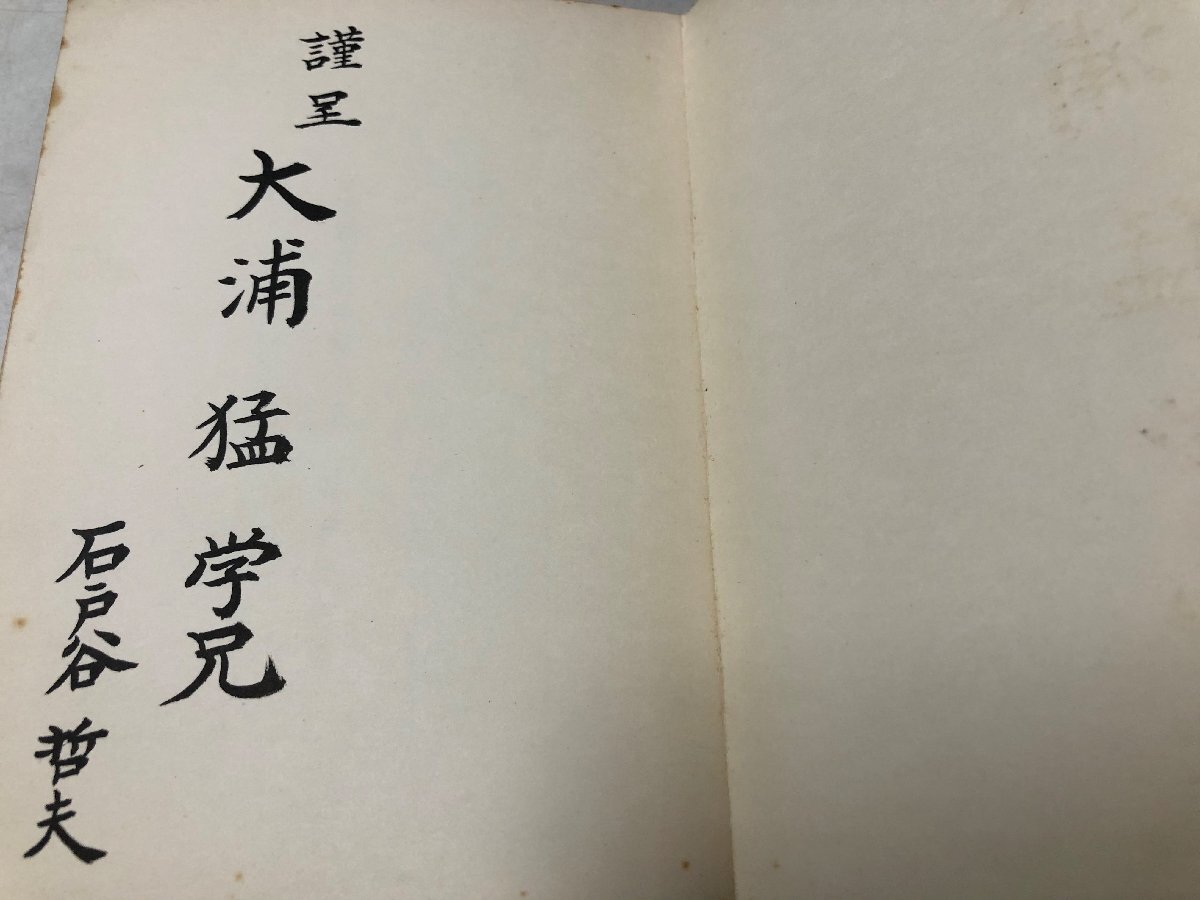 謹呈
大浦 猛 学兄
石戸谷 哲夫